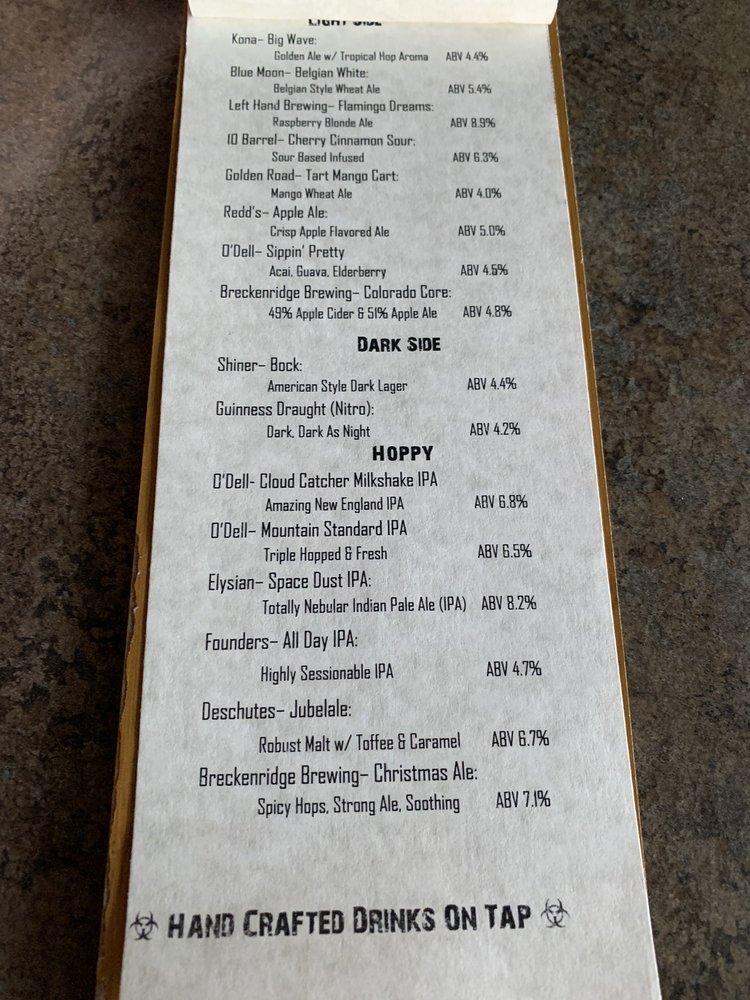 LIGHT SIDE
Kona– Big Wave:
Golden Ale w/ Tropical Hop Aroma ABV 4.4%
Blue Moon– Belgian White:
Belgian Style Wheat Ale ABV 5.4%
Left Hand Brewing– Flamingo Dreams:
Raspberry Blonde Ale ABV 8.9%
10 Barrel– Cherry Cinnamon Sour:
Sour Based Infused ABV 6.3%
Golden Road– Tart Mango Cart:
Mango Wheat Ale ABV 4.0%
Redd's– Apple Ale:
Crisp Apple Flavored Ale ABV 5.0%
O'Dell– Sippin' Pretty
Acai, Guava, Elderberry ABV 4.5%
Breckenridge Brewing– Colorado Core:
49% Apple Cider & 51% Apple Ale ABV 4.8%
DARK SIDE
Shiner– Bock:
American Style Dark Lager ABV 4.4%
Guinness Draught (Nitro):
Dark, Dark As Night ABV 4.2%
HOPPY
O'Dell- Cloud Catcher Milkshake IPA
Amazing New England IPA ABV 6.8%
O'Dell– Mountain Standard IPA
Triple Hopped & Fresh ABV 6.5%
Elysian– Space Dust IPA:
Totally Nebular Indian Pale Ale (IPA) ABV 8.2%
Founders– All Day IPA:
Highly Sessionable IPA ABV 4.7%
Deschutes– Jubelale:
Robust Malt w/ Toffee & Caramel ABV 6.7%
Breckenridge Brewing– Christmas Ale:
Spicy Hops, Strong Ale, Soothing ABV 7.1%
☣ HAND CRAFTED DRINKS ON TAP ☣